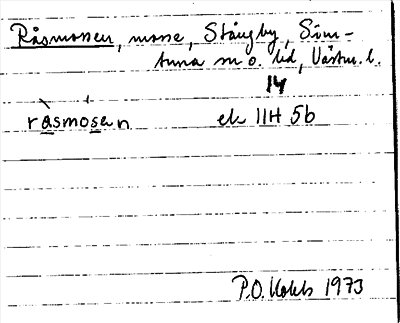 Råsmossen, mosse, Stångby, Sim-
tuna sn o. hd, Västm. l.
14
råsmosen ek 11H 5b
P.O. 1973